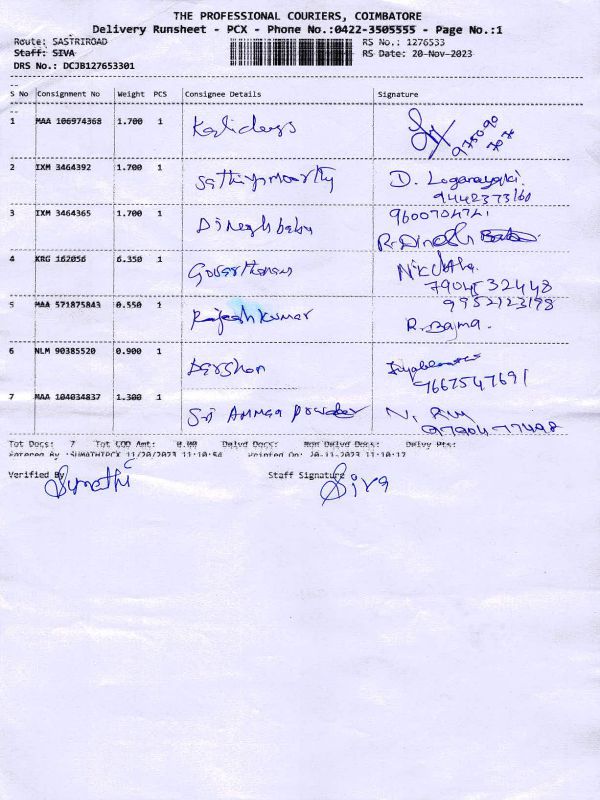 THE PROFESSIONAL COURIERS, COIMBATORE
Delivery Runsheet - PCX - Phone No.:0422-3505555 - Page No.:1
Route: SASTRIROAD RS No.: 1276533
Staff: SIVA RS Date: 20-Nov-2023
DRS No.: DCJB127653301
S No Consignment No Weight PCS Consignee Details Signature
1 MAA 106974368 1.700 1 Kalidass
2 IXM 3464392 1.700 1 Sathiyamoorthy D. Loganayaki
9442373160
3 IXM 3464365 1.700 1 Dineshbabu 9600704741
R. Dinesh Babu
4 KRG 162056 6.350 1 Govarthanan
7904532448
5 MAA 571875843 0.550 1 Rajesh Kumar 9952123198
R. Bajma.
6 NLM 90385520 0.900 1 Darshan
9667547691
7 MAA 104034837 1.300 1 Sri Ammaa Powder N.
Tot Docs: 7 Tot COD Amt: 0.00 Delvd Docs: Non Delvd Docs: Delvy Pts:
Entered By :SUMATHIPCX 11/20/2023 11:10:54 Printed On: 20-11-2023 11:10:17
Verified By Sumathi Staff Signature Siva